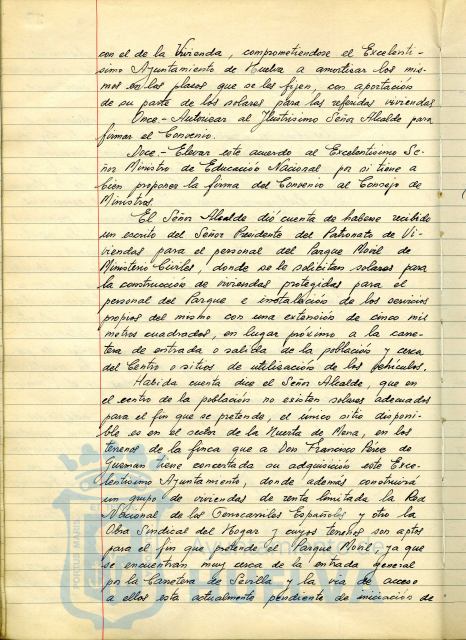 con el de la Vivienda, comprometiendose el Excelenti-
simo Ayuntamiento de Huelva a amortizar los mis-
mos en los plazos que se les fijen, con aportación
de su parte de los solares para las referidas viviendas
Once.- Autorizar al Ilustrisimo Señor Alcalde para
firmar el Convenio.
Doce.- Elevar este acuerdo al Excelentisimo Se-
ñor Ministro de Educación Nacional por si tiene a
bien proponer la firma del Convenio al Consejo de
Ministros.
El Señor Alcalde dió cuenta de haberse recibido
un escrito del Señor Presidente del Patronato de Vi-
viendas para el personal del Parque Movil de
Ministerios Civiles, donde se le solicitan solares para
la construcción de viviendas protegidas para el
personal del Parque e instalación de los servicios
propios del mismo con una extensión de cinco mil
metros cuadrados, en lugar próximo a la carre-
tera de entrada o salida de la población y cerca
del Centro o sitios de utilización de los vehiculos.
Habida cuenta dice el Señor Alcalde, que en
el centro de la población no existen solares adecuados
para el fin que se pretende, el único sitio disponi-
ble es en el sector de la Huerta de Mena, en los
terrenos de la finca que a Don Francisco Pérez de
Guzman tiene concertada su adquisición este Exce-
lentisimo Ayuntamiento, donde además construirá
un grupo de viviendas de renta limitada la Red
Nacional de los Ferrocarriles Españoles y otro la
Obra Sindical del Hogar y cuyos terrenos son aptos
para el fin que pretende el Parque Movil ya que
se encuentran muy cerca de la entrada general
por la Carretera de Sevilla y la via de acceso
a ellos esta actualmente pendiente de iniciación de
PORTUS MARIS